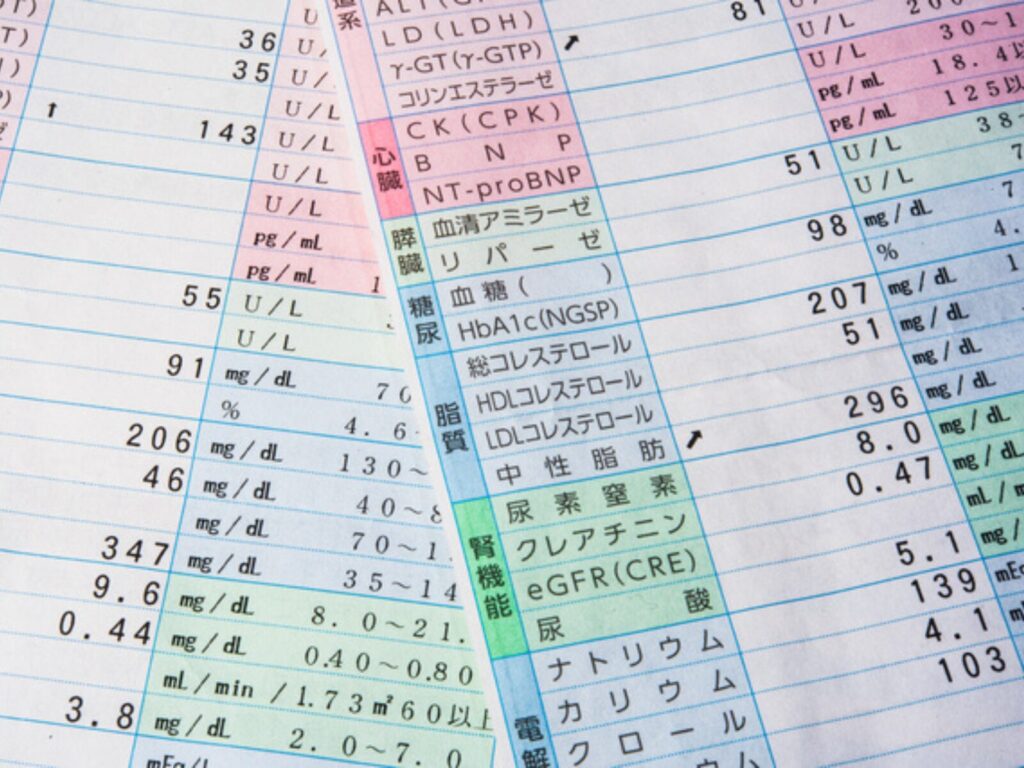 36 U/
35 U/L
U/L
↑ 143 U/L
U/L
U/L
pg/mL
pg/mL 1
55 U/L
U/L
91 mg/dL 70
% 4.6
206 mg/dL 130~
46 mg/dL 40~
mg/dL 70~1
347 mg/dL 35~14
9.6 mg/dL 8.0~21.
0.44 mg/dL 0.40~0.80
mL/min/1.73㎡60以上
3.8 mg/dL 2.0~7.0
LD(LDH)
γ-GT(γ-GTP) ↗ 81 U/L
コリンエステラーゼ U/L
心臓 CK(CPK) U/L 30~1
BNP pg/mL 18.4以
NT-proBNP pg/mL 125以
膵臓 血清アミラーゼ 51 U/L 38
リパーゼ U/L
糖尿 血糖( ) 98 mg/dL 7
HbA1c(NGSP) % 4.
脂質 総コレステロール 207 mg/dL 1
HDLコレステロール 51 mg/dL
LDLコレステロール mg/dL
中性脂肪 ↗ 296 mg/dL
腎機能 尿素窒素 8.0 mg/dL
クレアチニン 0.47 mg/dL
eGFR(CRE) mL/
尿酸 5.1 mg/
電解 ナトリウム 139 mEq
カリウム 4.1
クロール 103